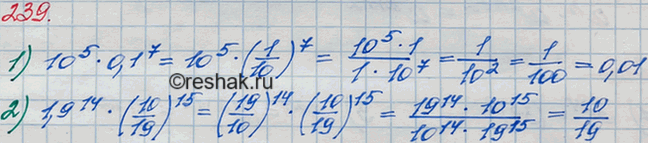 239.
1) 10⁵ · 0,1⁷ = 10⁵ · (1/10)⁷ = (10⁵ · 1)/(1 · 10⁷) = 1/10² = 1/100 = 0,01
©reshak.ru
2) 1,9¹⁴ · (10/19)¹⁵ = (19/10)¹⁴ · (10/19)¹⁵ = (19¹⁴ · 10¹⁵)/(10¹⁴ · 19¹⁵) = 10/19